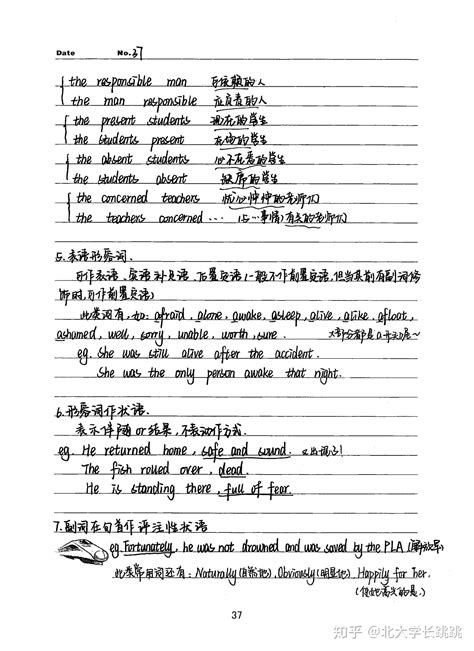 Date No.37
the responsible man 可依赖的人
the man responsible 应负责的人
the present students 现在的学生
the students present 在场的学生
the absent students 心不在焉的学生
the students absent 缺席的学生
the concerned teachers 忧心忡忡的老师们
the teachers concerned ... (与…事情)有关的老师们
5. 表语形容词.
可作表语、宾语补足语、后置定语(一般不作前置定语,但当其前有副词修
饰时,可作前置定语)
此类词有,如: afraid, alone, awake, asleep, alive, alike, afloat,
ashamed, well, sorry, unable, worth, sure. 大部分都是a-开头哒~
eg. She was still alive after the accident.
She was the only person awake that night.
6. 形容词作状语.
表示伴随or结果,不表动作方式.
eg. He returned home, safe and sound.
The fish rolled over, dead.
He is standing there, full of fear.
7. 副词在句首作评注性状语
eg. Fortunately, he was not drowned and was saved by the PLA (解放军)
此类常用词还有: Naturally(自然地), Obviously(明显地), Happily for her.
(使她高兴的是.)
37
知乎 @北大学长跳跳